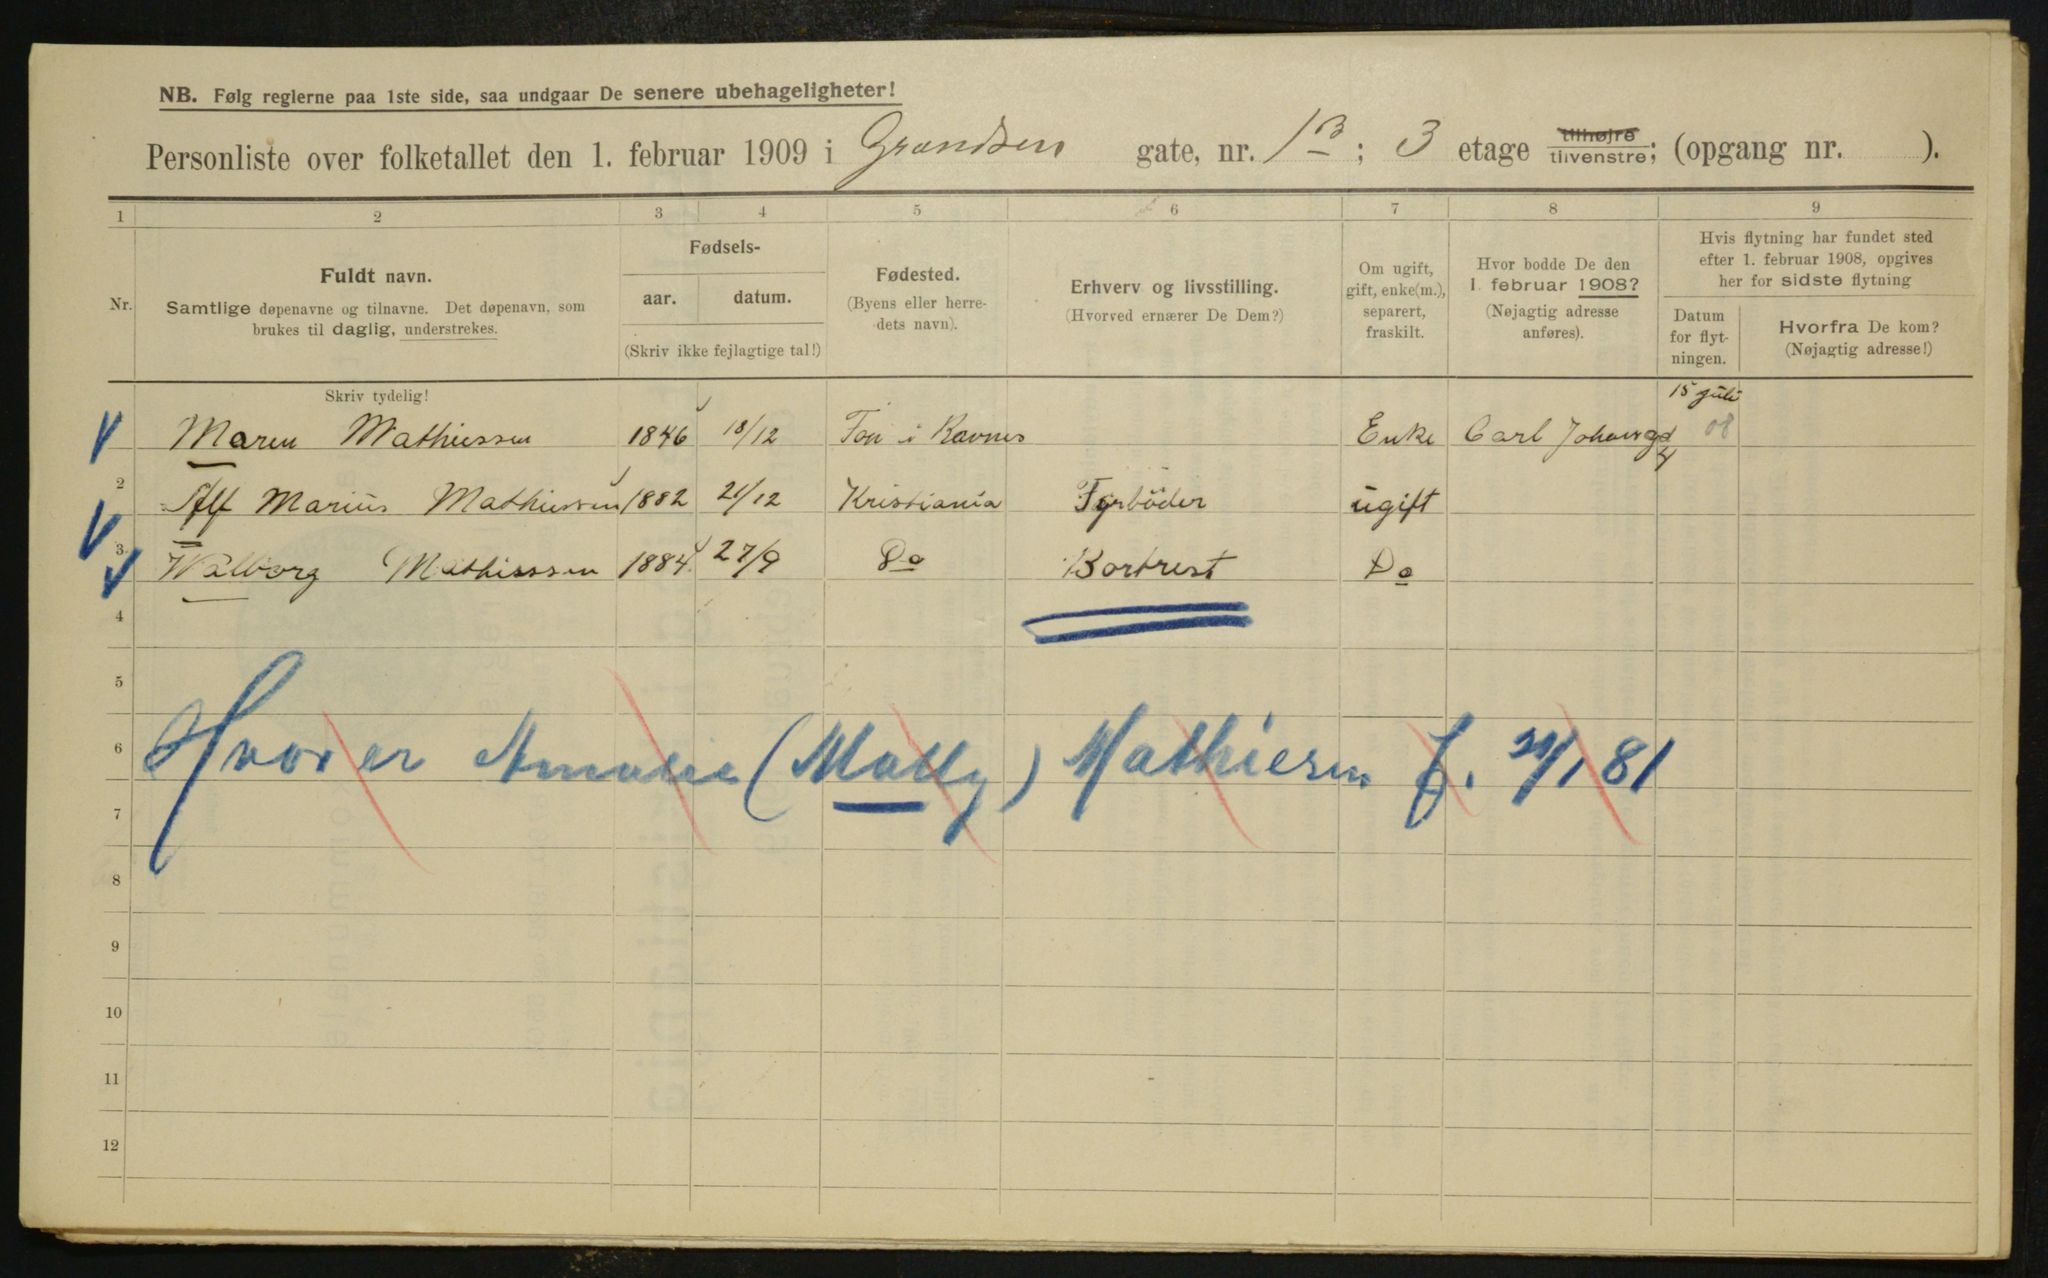 NB. Følg reglerne paa 1ste side, saa undgaar De senere ubehageligheter!
Personliste over folketallet den 1. februar 1909 i Grændsen gate, nr. 13; 3 etage tilhøjre tilvenstre; (opgang nr. ).
1 2 3 4 5 6 7 8 9
Nr.
Fuldt navn.
Samtlige døpenavne og tilnavne. Det døpenavn, som
brukes til daglig, understrekes.
Fødsels-
aar. datum.
(Skriv ikke fejlagtige tal!)
Fødested.
(Byens eller herre-
dets navn).
Erhverv og livsstilling.
(Hvorved ernærer De Dem?)
Om ugift,
gift, enke(m.),
separert,
fraskilt.
Hvor bodde De den
1. februar 1908?
(Nøjagtig adresse
anføres).
Hvis flytning har fundet sted
efter 1. februar 1908, opgives
her for sidste flytning
Datum
for flyt-
ningen.
Hvorfra De kom?
(Nøjagtig adresse!)
Skriv tydelig!
Maren Mathiessen 1846 18/12 i Enke Carl Johansgd 4 15 juli 08
2 Alf Marius Mathiessen 1882 21/12 Kristiania Fyrbøder ugift
3 Walborg Mathissen 1884 27/9 Do Bortrest Do
4
5
6 Hvor er Amalie (Mally) Mathiesen f. 81
7
8
9
10
11
12